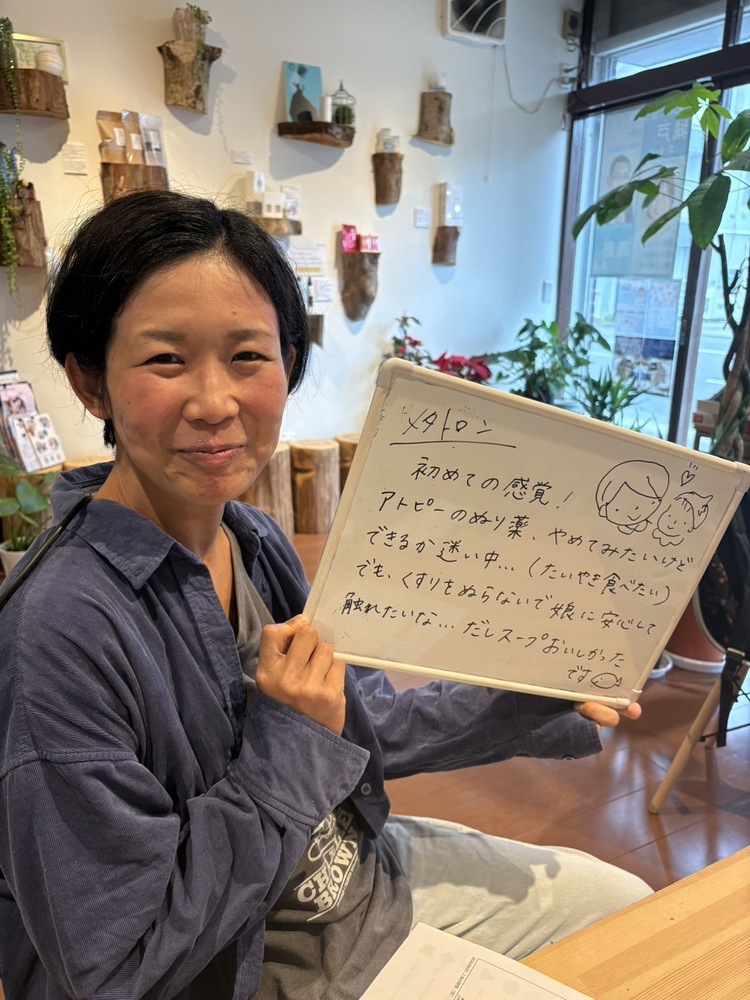 メタトロン
初めての感覚！
アトピーのぬり薬、やめてみたいけど
できるか迷い中…（たいやき食べたい）
でも、くすりをぬらないで娘に安心して
触れたいな… だしスープおいしかった
です